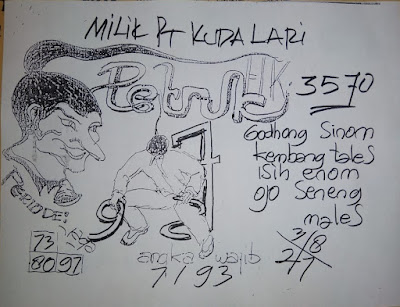 MILIK PT KUDA LARI
Petruk HK: 3570
Godhong Sinom
kembang tales
isih enom
ojo Seneng
males
PERIODE:
9 1
73
80 97
angka wajib
7193
3/8
2/7